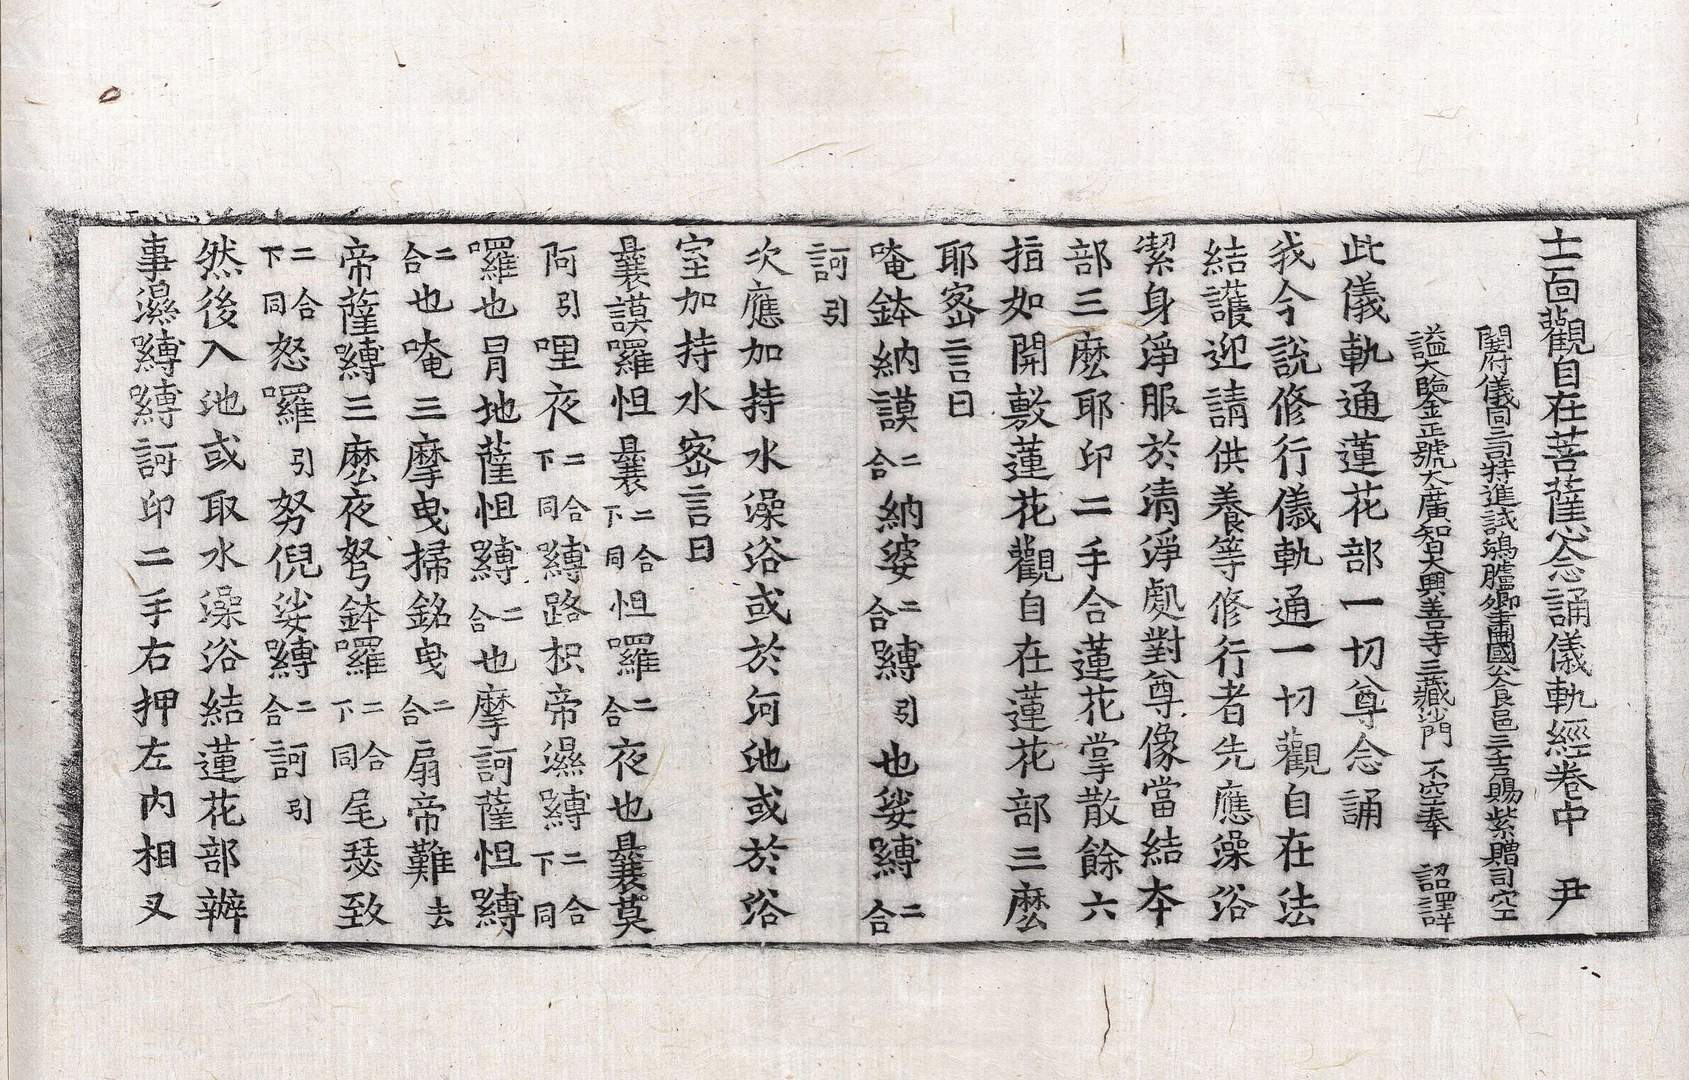 十一面觀自在菩薩念誦儀軌經卷中 尹
開府儀同三司特進試鴻臚卿肅國公食邑三千戶賜紫贈司空
謚大鑒正號大廣智大興善寺三藏沙門 不空奉 詔譯
此儀軌通蓮花部一切尊念誦
我今說修行儀軌通一切觀自在法
結護迎請供養等修行者先應澡浴
潔身淨服於清淨處對尊像當結本
部三麽耶印二手合蓮花掌散餘六
指如開敷蓮花觀自在蓮花部三麽
耶密言曰
唵鉢納謨二合納婆二合縛引也娑縛二合
訶引
次應加持水澡浴或於河池或於浴
室加持水密言曰
曩謨囉怛曩二合下同怛囉二合夜也曩莫
阿引哩夜二合下同縛路枳帝濕縛二合下同
囉也冒地薩怛縛二合也摩訶薩怛縛
二合也唵三摩曳掃銘曳二合扇帝難去
帝薩縛三麽夜弩鉢囉二合下同尾瑟致
二合下同怒囉引努倪娑縛二合訶引
然後入池或取水澡浴結蓮花部辦
事濕縛縛訶印二手右押左內相叉